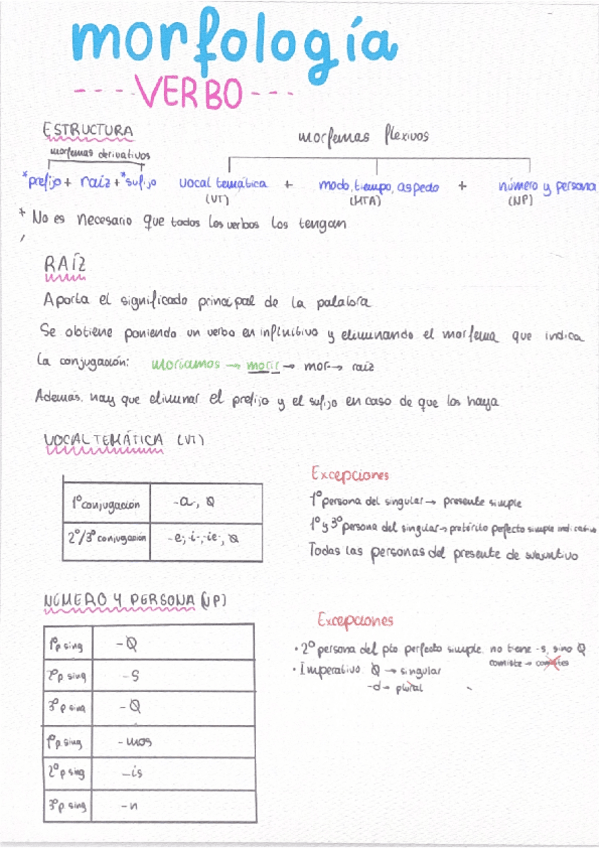 morfología
----VERBO---
ESTRUCTURA
morfemas derivativos
morfemas flexivos
*prefijo + raíz + *sufijo vocal temática + modo, tiempo, aspecto + número y persona
(VT) (MTA) (NP)
* No es necesario que todos los verbos los tengan
RAÍZ
Aporta el significado principal de la palabra
Se obtiene poniendo un verbo en infinitivo y eliminando el morfema que indica
la conjugación: moríamos → morir → mor → raíz
Además, hay que eliminar el prefijo y el sufijo en caso de que los haya
VOCAL TEMÁTICA (VT)
1º conjugación -a, Ø
2º/3º conjugación -e, -i-, -ie-, Ø
Excepciones
1º persona del singular → presente simple
1º y 3º persona del singular → pretérito perfecto simple indicativo
Todas las personas del presente de subjuntivo
NÚMERO Y PERSONA (NP)
1ºp sing -Ø
2ºp sing -s
3ºp sing -Ø
1ºp sing -mos
2ºp sing -is
3ºp sing -n
Excepciones
· 2º persona del pto perfecto simple. no tiene -s, sino Ø
comiste → comistes
· Imperativo. Ø → singular
-d → plural